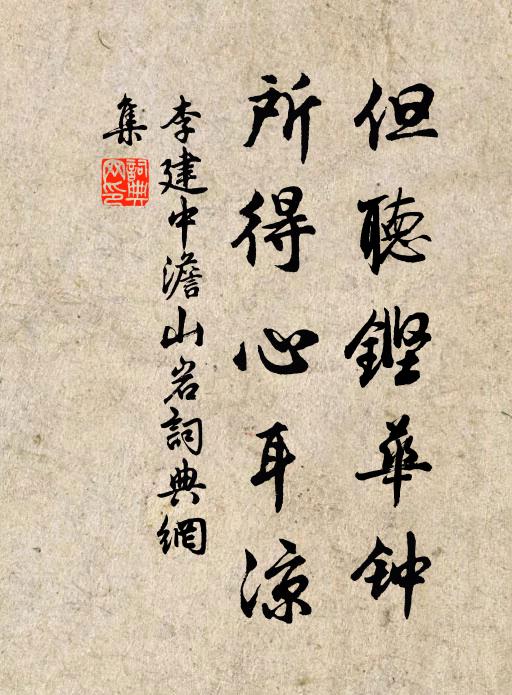 但聽鏗華钟
所得心耳凉
李建中澹山岩詞典網
集
詞典網印